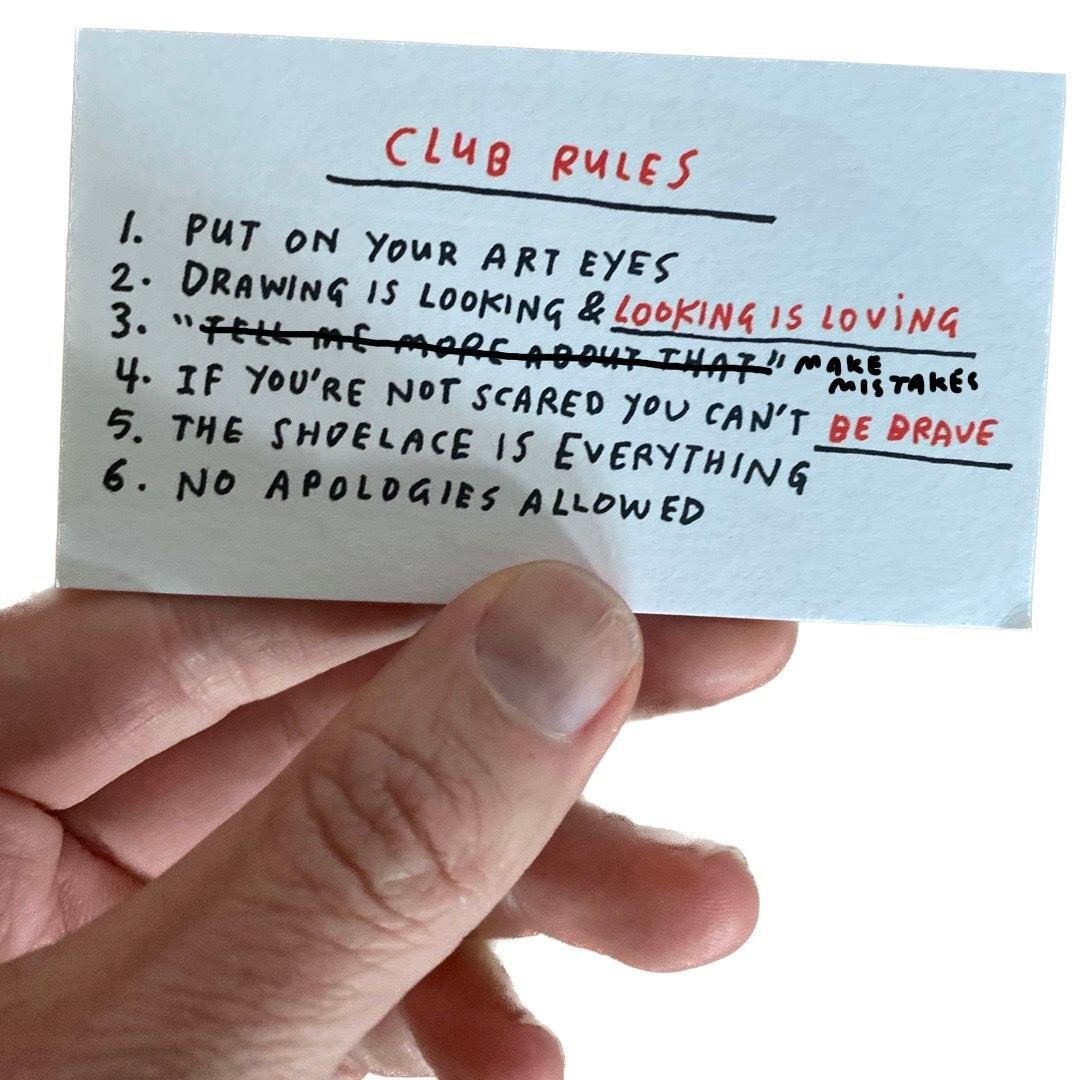 CLUB RULES
1. PUT ON YOUR ART EYES
2. DRAWING IS LOOKING & LOOKING IS LOVING
3. "TELL ME MORE ABOUT THAT" MAKE MISTAKES
4. IF YOU'RE NOT SCARED YOU CAN'T BE BRAVE
5. THE SHOELACE IS EVERYTHING
6. NO APOLOGIES ALLOWED